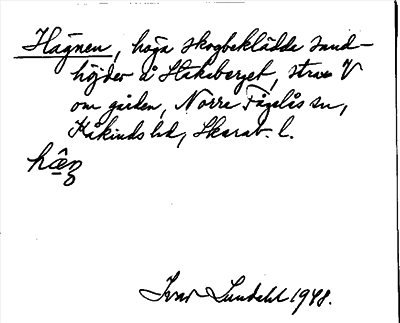 Hagnen, höga skogbeklädda sand-
höjder å Stakaberget, strax V
om gården, Norra Fågelås sn,
Kåkinds hd, Skarab. l.
hâŋ
Ivar Lundahl 1948.